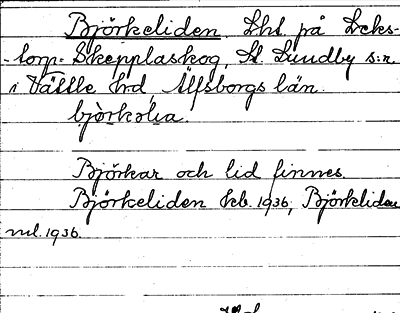 Björkeliden. Lht. på Leks-
torp- Skepplaskog, St. Lundby s:n.
i Vättle hrd Älfsborgs län.
Björkar och lid finnes.
Björkeliden kb. 1936, Björkliden
mtl. 1936.